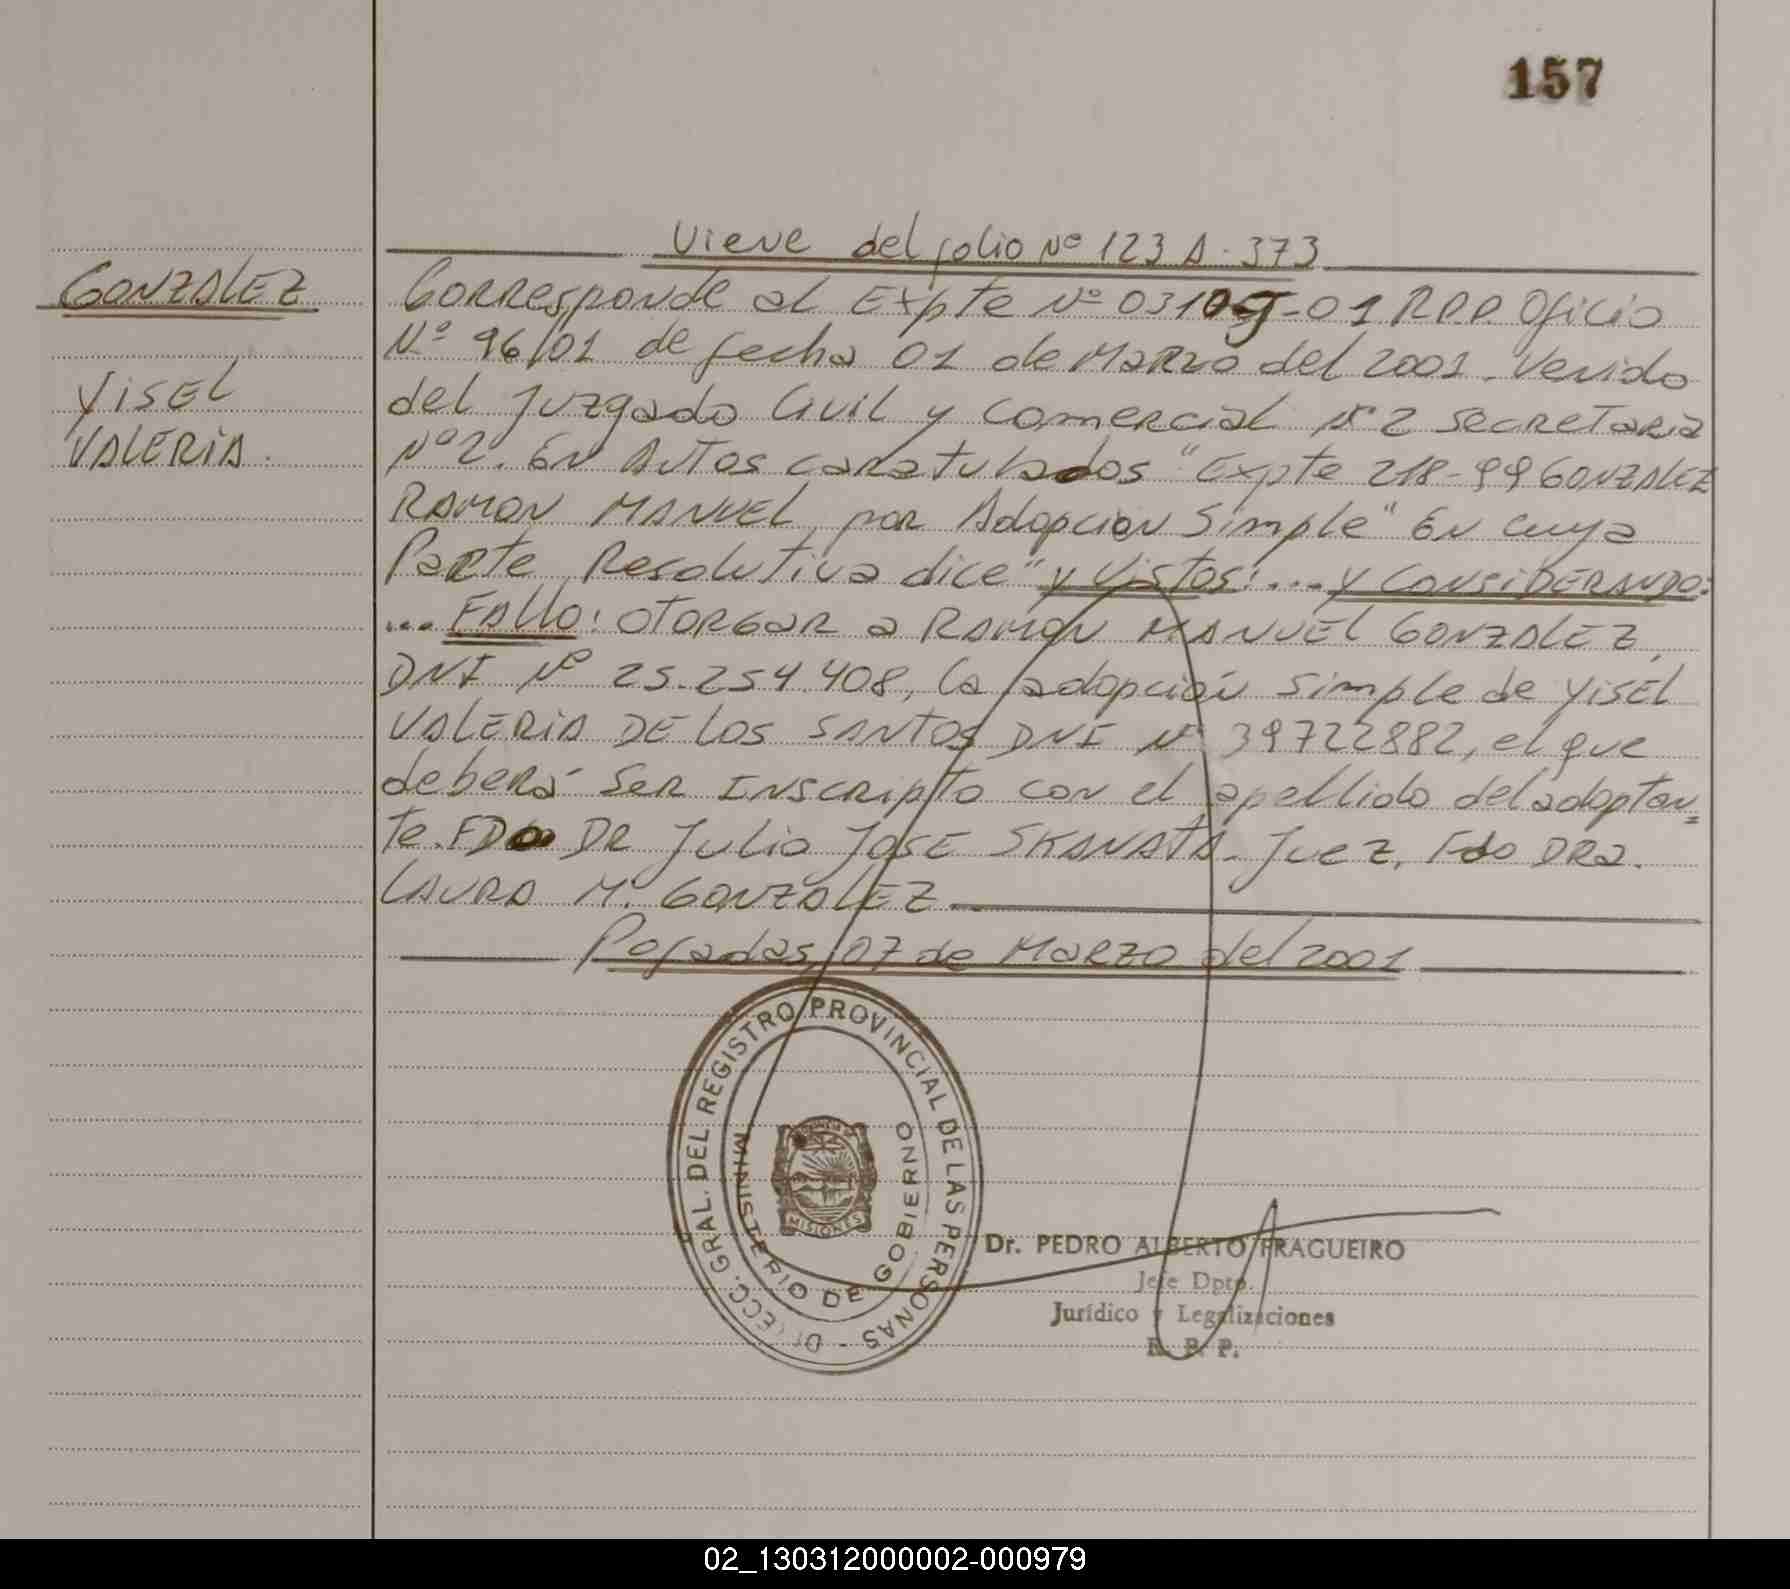 157
Viene del folio Nº 123 A-373
GONZALEZ
Corresponde al Expte Nº 03109-01 R.P.P. Oficio
Nº 96/01 de fecha 01 de Marzo del 2001. Venido
YISEL
del Juzgado Civil y Comercial Nº 2 Secretaria
VALERIA.
Nº 2. En Autos caratulados "Expte 218-99 GONZALEZ
RAMON MANUEL, por Adopcion Simple" En cuya
Parte Resolutiva dice "y Vistos:... y CONSIDERANDO:
... FALLO: OTORGAR a RAMON MANUEL GONZALEZ,
DNI Nº 25.254.408, la adopción simple de Yisel
VALERIA DE LOS SANTOS DNI Nº 39722882, el que
deberá ser Inscripto con el apellido del adoptan-
te. FDO DR Julio JOSE SKANATA. Juez. Fdo DRa.
LAURA M. GONZALEZ
Posadas, 07 de Marzo del 2001
DIRECC. GRAL. DEL REGISTRO PROVINCIAL DE LAS PERSONAS -
MINISTERIO DE GOBIERNO
MISIONES
Dr. PEDRO ALBERTO FRAGUEIRO
Jefe Dpto.
Jurídico y Legalizaciones
R. P. P.
02_130312000002-000979